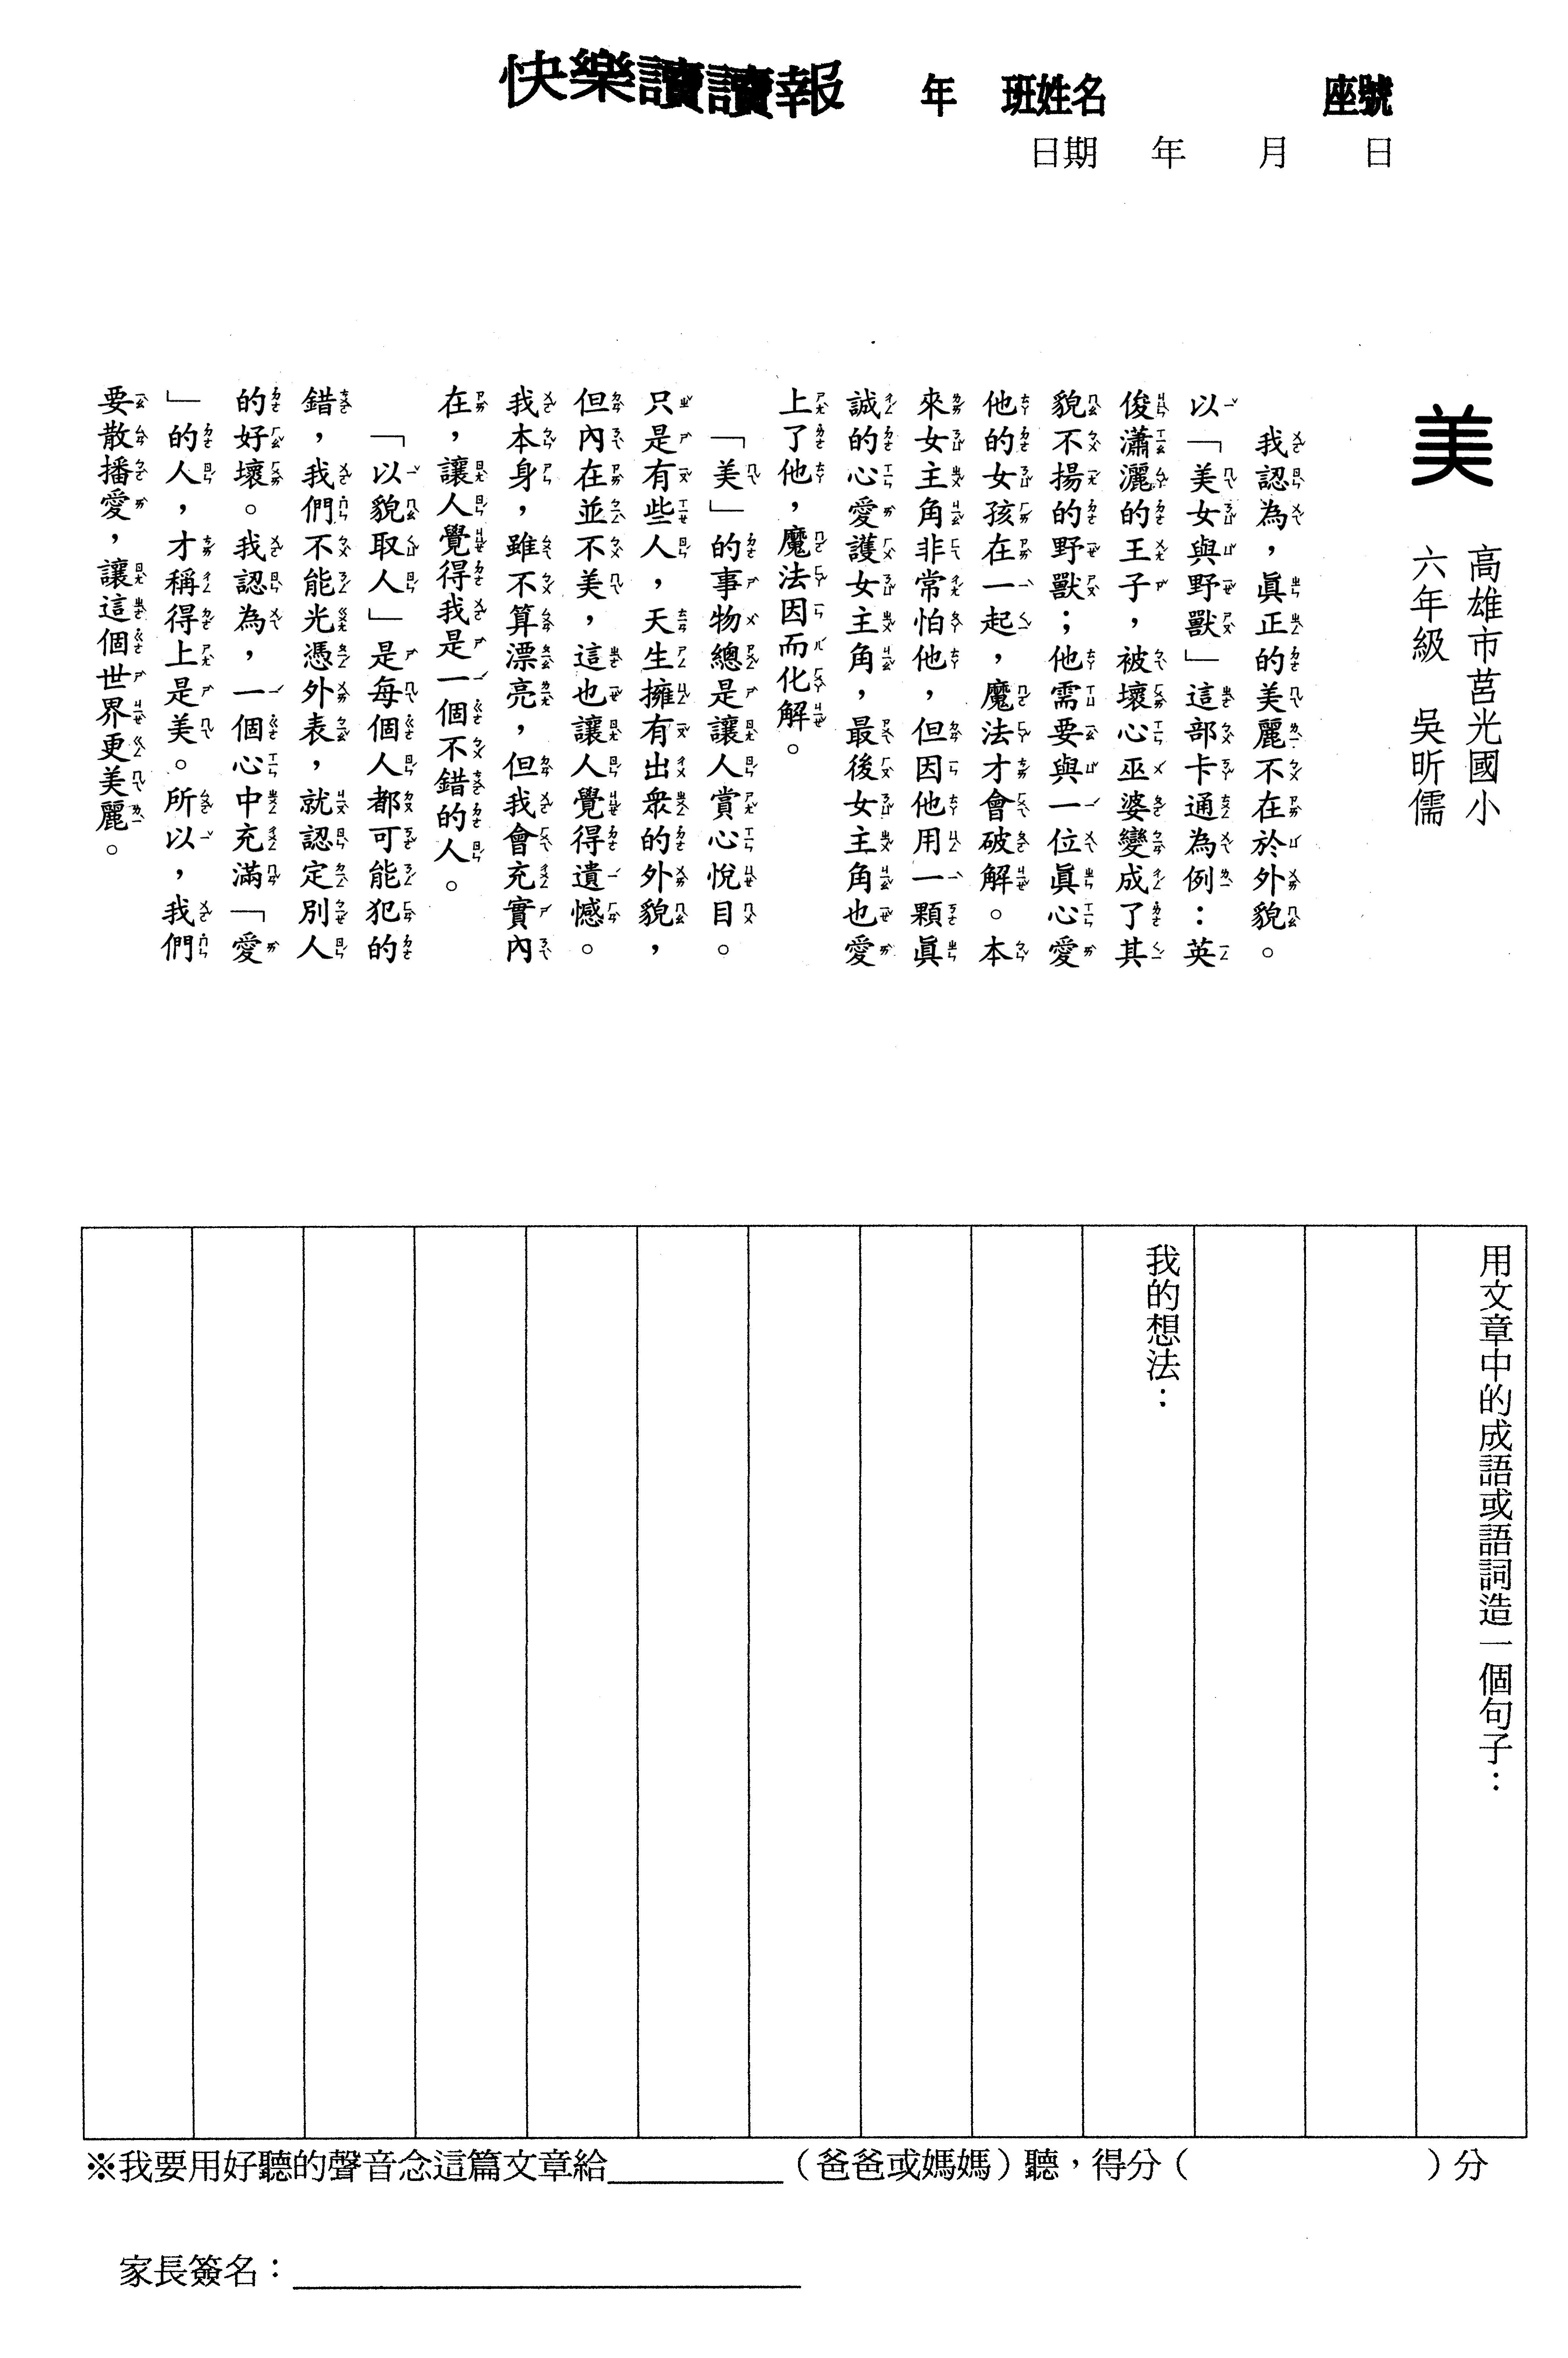 快樂讀讀報 年 班姓名 座號
日期 年 月 日
美
高雄市莒光國小
六年級 吳昕儒
我認為，真正的美麗不在於外貌。
以「美女與野獸」這部卡通為例：英
俊瀟灑的王子，被壞心巫婆變成了其
貌不揚的野獸；他需要與一位真心愛
他的女孩在一起，魔法才會破解。本
來女主角非常怕他，但因他用一顆真
誠的心愛護女主角，最後女主角也愛
上了他，魔法因而化解。
「美」的事物總是讓人賞心悅目。
只是有些人，天生擁有出眾的外貌，
但內在並不美，這也讓人覺得遺憾。
我本身，雖不算漂亮，但我會充實內
在，讓人覺得我是一個不錯的人。
「以貌取人」是每個人都可能犯的
錯，我們不能光憑外表，就認定別人
的好壞。我認為，一個心中充滿「愛
」的人，才稱得上是美。所以，我們
要散播愛，讓這個世界更美麗。
用文章中的成語或語詞造一個句子：
我的想法：
※我要用好聽的聲音念這篇文章給__________（爸爸或媽媽）聽，得分（ ）分
家長簽名：__________